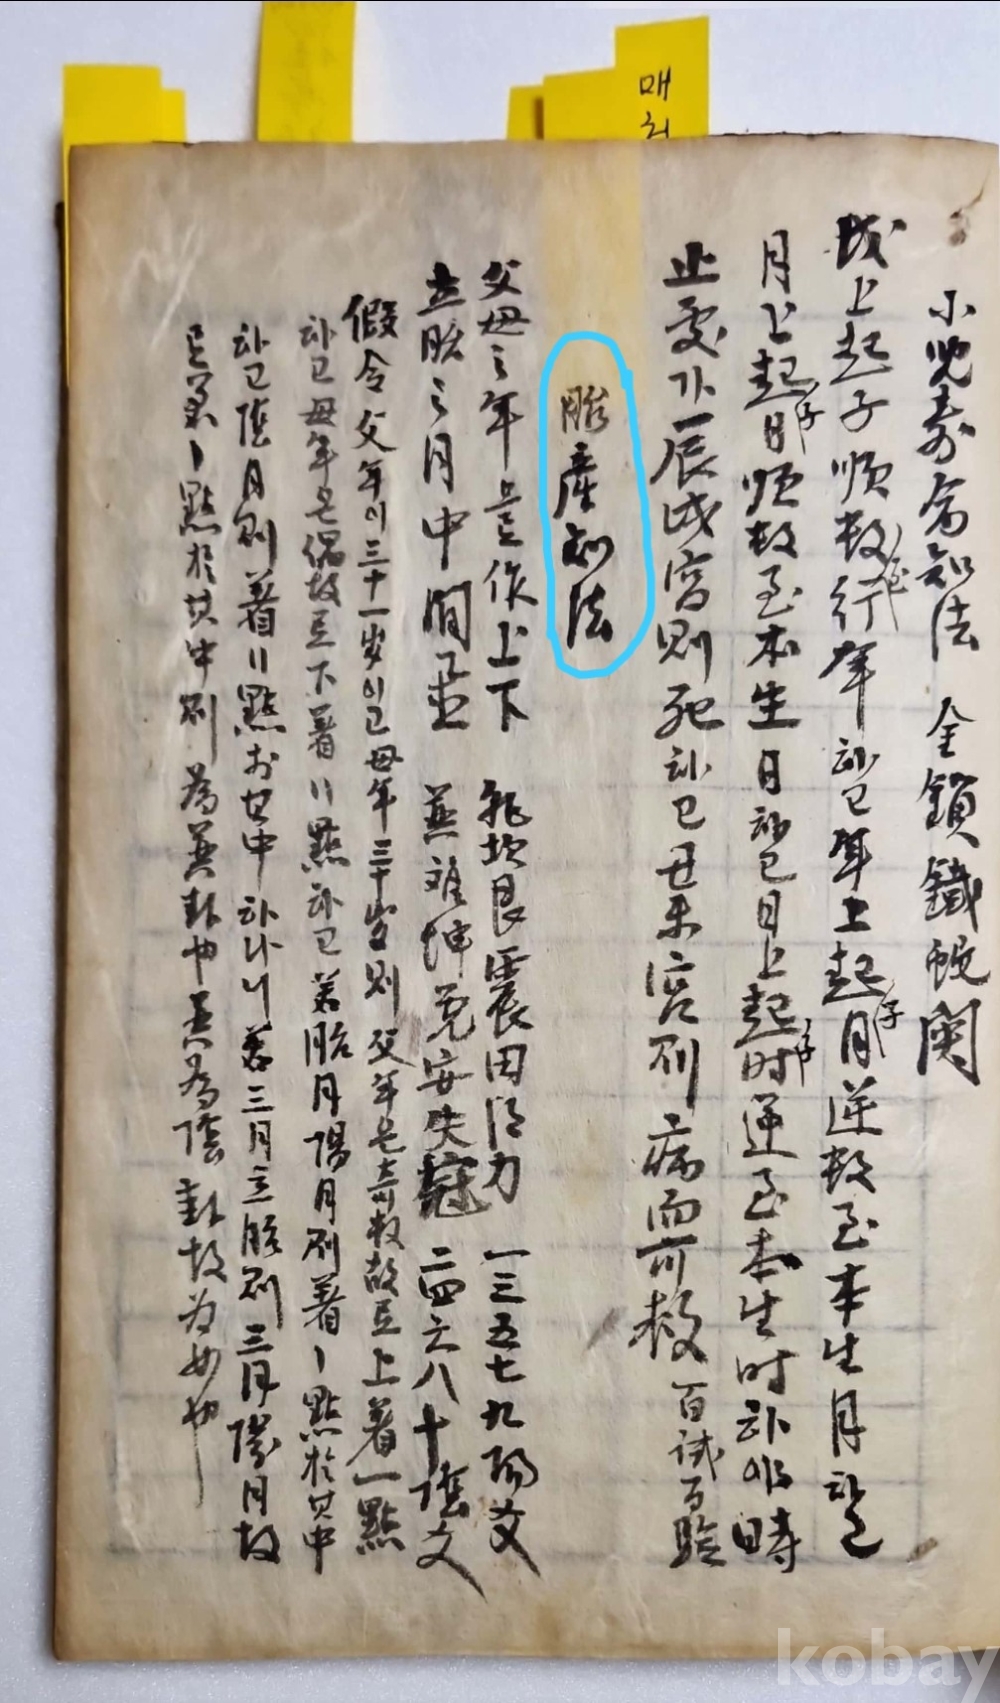 매
小兒壽命知法 金鎖鐵蛇関
歲上起子順数至行年하고 年上起子月逆数至本生月하고
月上起子日順数至本生日하고 日上起子时逆至本生时하야 時
止處가 辰戌宮則死하고 丑未宮則病而可救 百試百驗
胎産知法
父母之年으로 作上下 乾坎艮震因 力 一三五七九陽爻
立胎之月中間 巽離坤兌安失 二四六八十陰爻
假令父年이 三十一岁이고 母年三十岁则 父年은 奇数故로 上着一點
하고 母年은 偶故로 下着〢點하고 若胎月陽月則着〡點於其中
하고 陰月則着〢點於其中하나니 若三月立胎則 三月陽月故
로 着〡點於其中則 為巽卦也 巽為陰卦故为女也
kobay